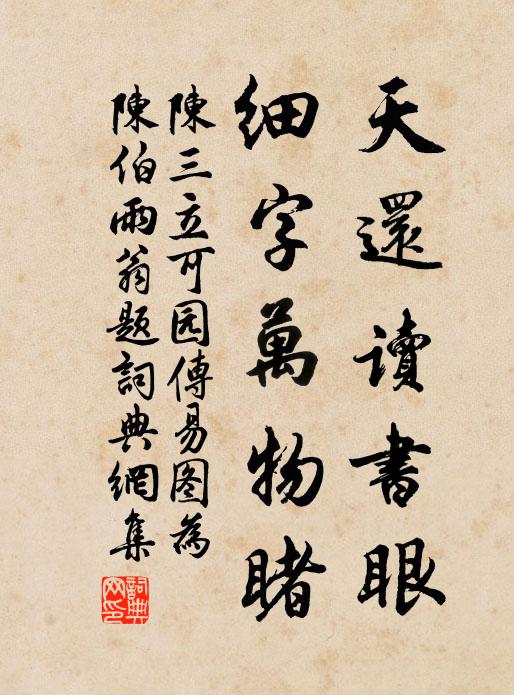 天還讀書眼
細字萬物睹
陳三立可园傳易图為
陳伯雨翁題詞典網集
詞典网印